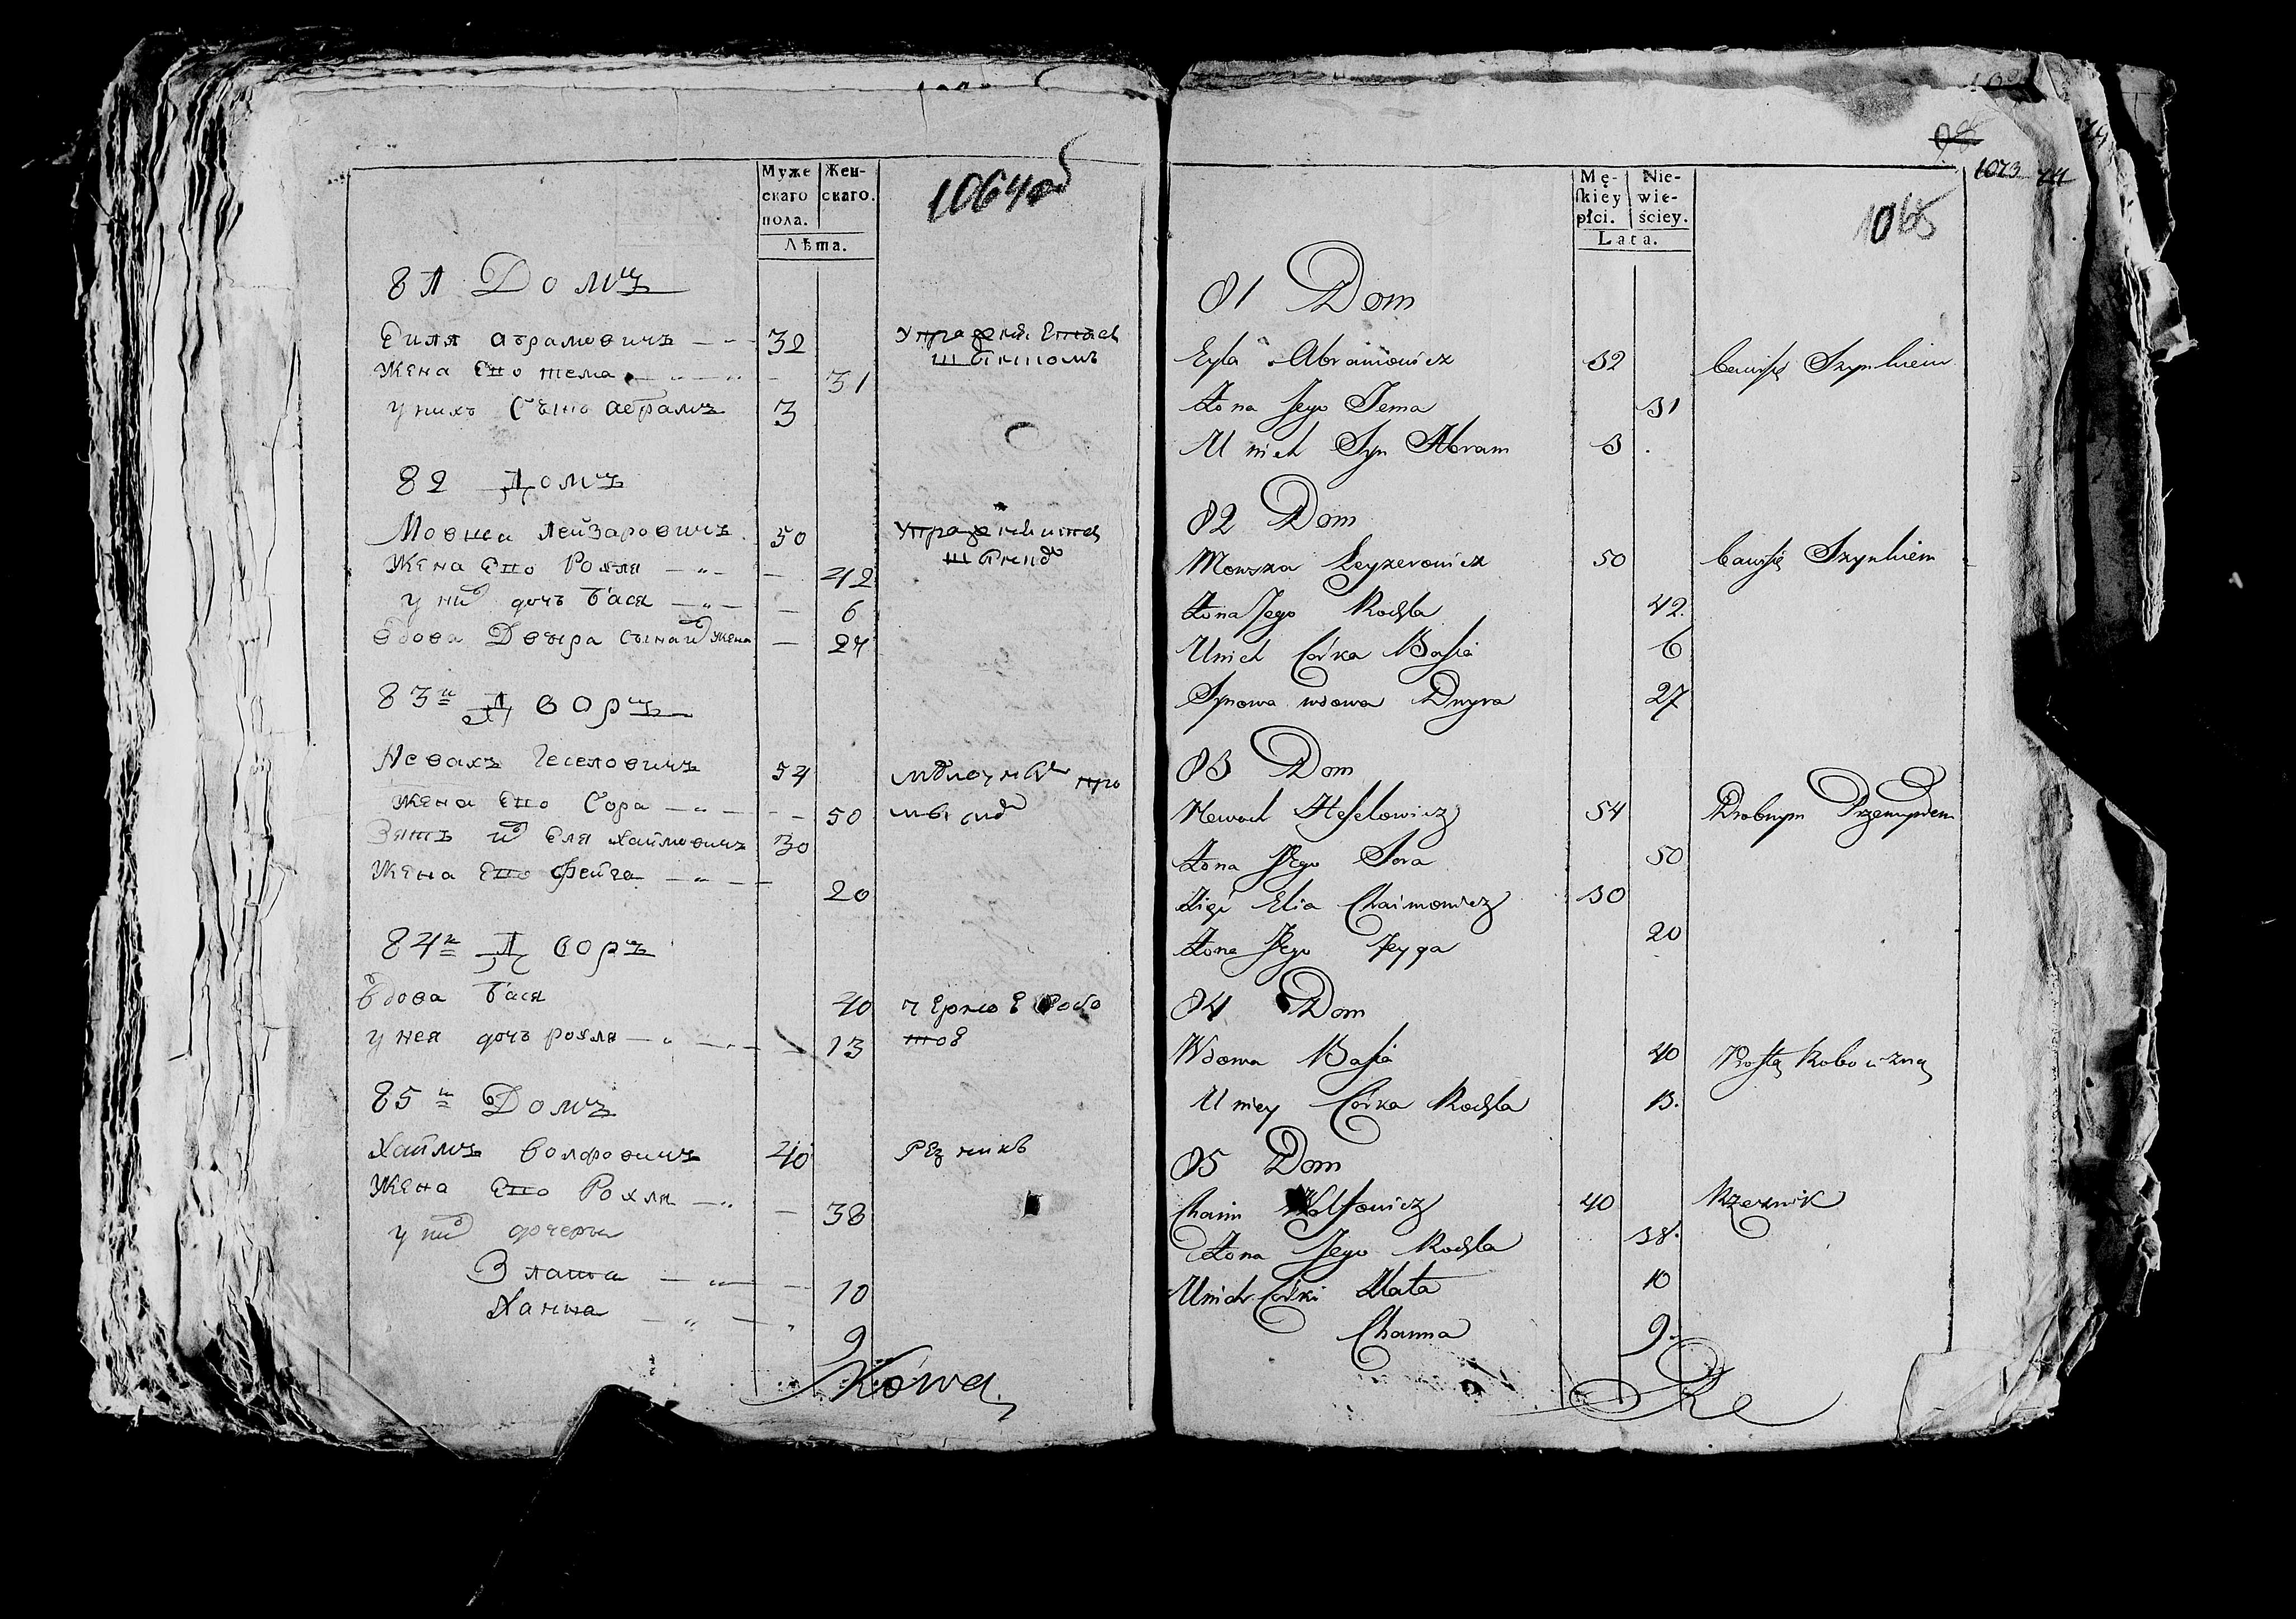 1064 об
Муже
скаго
пола.
Жен-
скаго.
Лѣта.
81 Домъ
Еиля Абрамовичъ 32
Жена Его Тема 31
у нихъ Сынъ Абрамъ 3
82 Домъ
Мовша Лейзаровичъ 50
Жена Его Рохля 42
у них дочь Бася 6
вдова Двыра сына их жена 27
83й Дворъ
Невахъ Геселовичъ 54
Жена Его Сора 50
Зять их Еля Хаймовичъ 30
Жена Его Фейга 20
84й Дворъ
Вдова Бася 40 чЕрною Е рабо
тоЕ
у нея дочь рохля 13
85й Домъ
Хаймъ Волфовичъ 40 РЕзникъ
Жена Его Рохля 38
у них дочери
Злата 10
Ханна 9
1073
1065
Mę-
skiey
płci.
Nie-
wie-
ściey.
Lata.
81 Dom
Eyla Abramowicz 32 bawi się Szynkiem
Żona Jego Tema 31
U nich Syn Abram 3
82 Dom
Mowsza Leyzerowicz 50 bawi się Szynkiem
Żona Jego Rochla 42.
U nich Córka Basia 6
Synowa wdowa Dwyra 27
83 Dom
Newach Heselowicz 54 Drobnym Przemysłem
Żona Jego Sora 50
Zięć Elia Chaimowicz 30
Żona Jego Feyga 20
84 Dom
Wdowa Basia 40 Prostą Robocizną
U niey Córka Rochla 13.
85 Dom
Chaim Wolfowicz 40 Rzeznik
Żona Jego Rochla 38.
U nich Córki Złata 10
Channa 9.